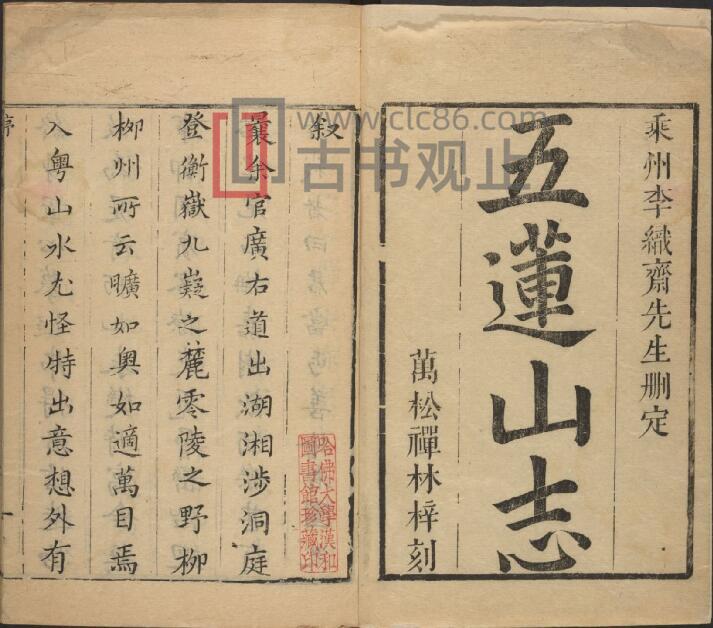 乘州李織齋先生刪定
五蓮山志
萬松禪林梓刻
敘
曩余官廣右道出湖湘涉洞庭
登衡嶽九嶷之麓零陵之野柳
柳州所云曠如奧如適萬目焉
入粵山水尤怪特出意想外有
序
一
哈佛大學漢和
圖書館珍藏印
www.clc86.com
古书观止